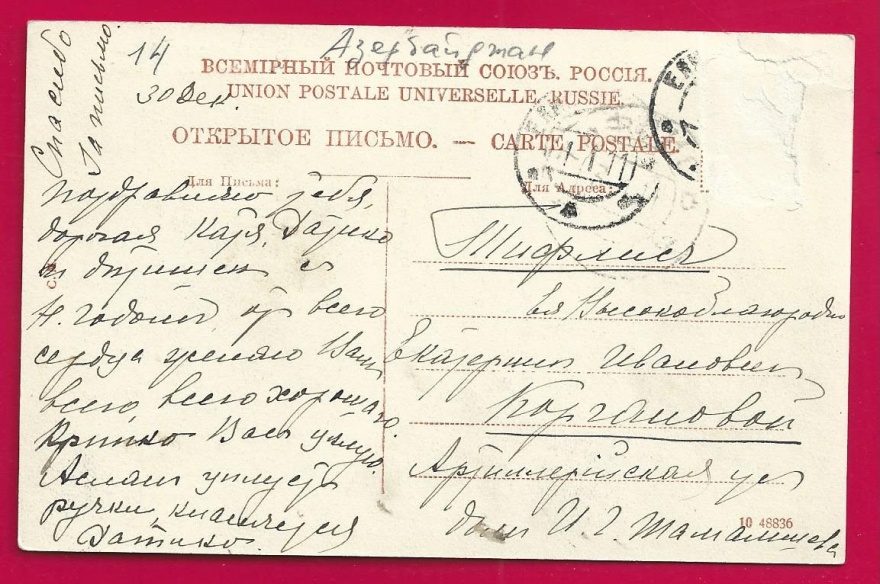 Спасибо
за письмо
14
30 Дек.
Азербайджан
ВСЕМІРНЫЙ ПОЧТОВЫЙ СОЮЗЪ. РОССІЯ.
UNION POSTALE UNIVERSELLE. RUSSIE
ОТКРЫТОЕ ПИСЬМО. — CARTE POSTALE.
Для Письма:
Для Адреса:
Поздравляю тебя,
дорогая Катя, Датико
и с
Н. годомъ от всего
сердца желаю Вамъ
всего, всего хорошаго.
Крѣпко Васъ цѣлую.
Асланъ цѣлуетъ
ручки, кланяется
Датико.
Тифлисъ
Ея Высокоблагородію
Екатеринѣ Ивановнѣ
Коргановой
Артиллерійская ул
домъ И. Г. Шамамшева
10 48836